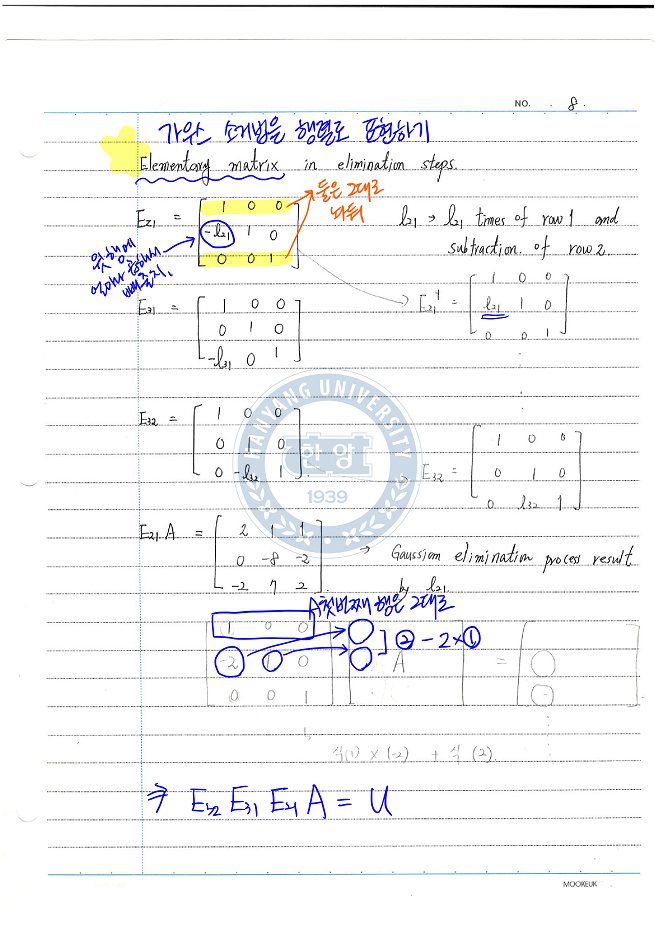 NO. 8.
가우스 소거법을 행렬로 표현하기
Elementary matrix in elimination steps.
E21 = [ 1 0 0
-l21 1 0
0 0 1 ]
둘은 그대로
놔둬
l21 → l21 times of row 1 and
subtraction. of row 2.
윗행에
얼마나 곱해서
빼줄지.
→ E21^-1 = [ 1 0 0
l21 1 0
0 0 1 ]
E31 = [ 1 0 0
0 1 0
-l31 0 1 ]
HANYANG UNIVERSITY
한양
1939
E32 = [ 1 0 0
0 1 0
0 -l32 1 ]
→ E32 = [ 1 0 0
0 1 0
0 l32 1 ]
E21.A = [ 2 1 1
0 -8 -2
-2 7 2 ]
→ Gaussian elimination process result
by l21.
A첫번째 행은 그대로
[ 1 0 0
-2 1 0
0 0 1 ]
A =
② - 2×①
식(1) × (-2) + 식 (2).
⇒ E32 E31 E21 A = U
MOOKEUK